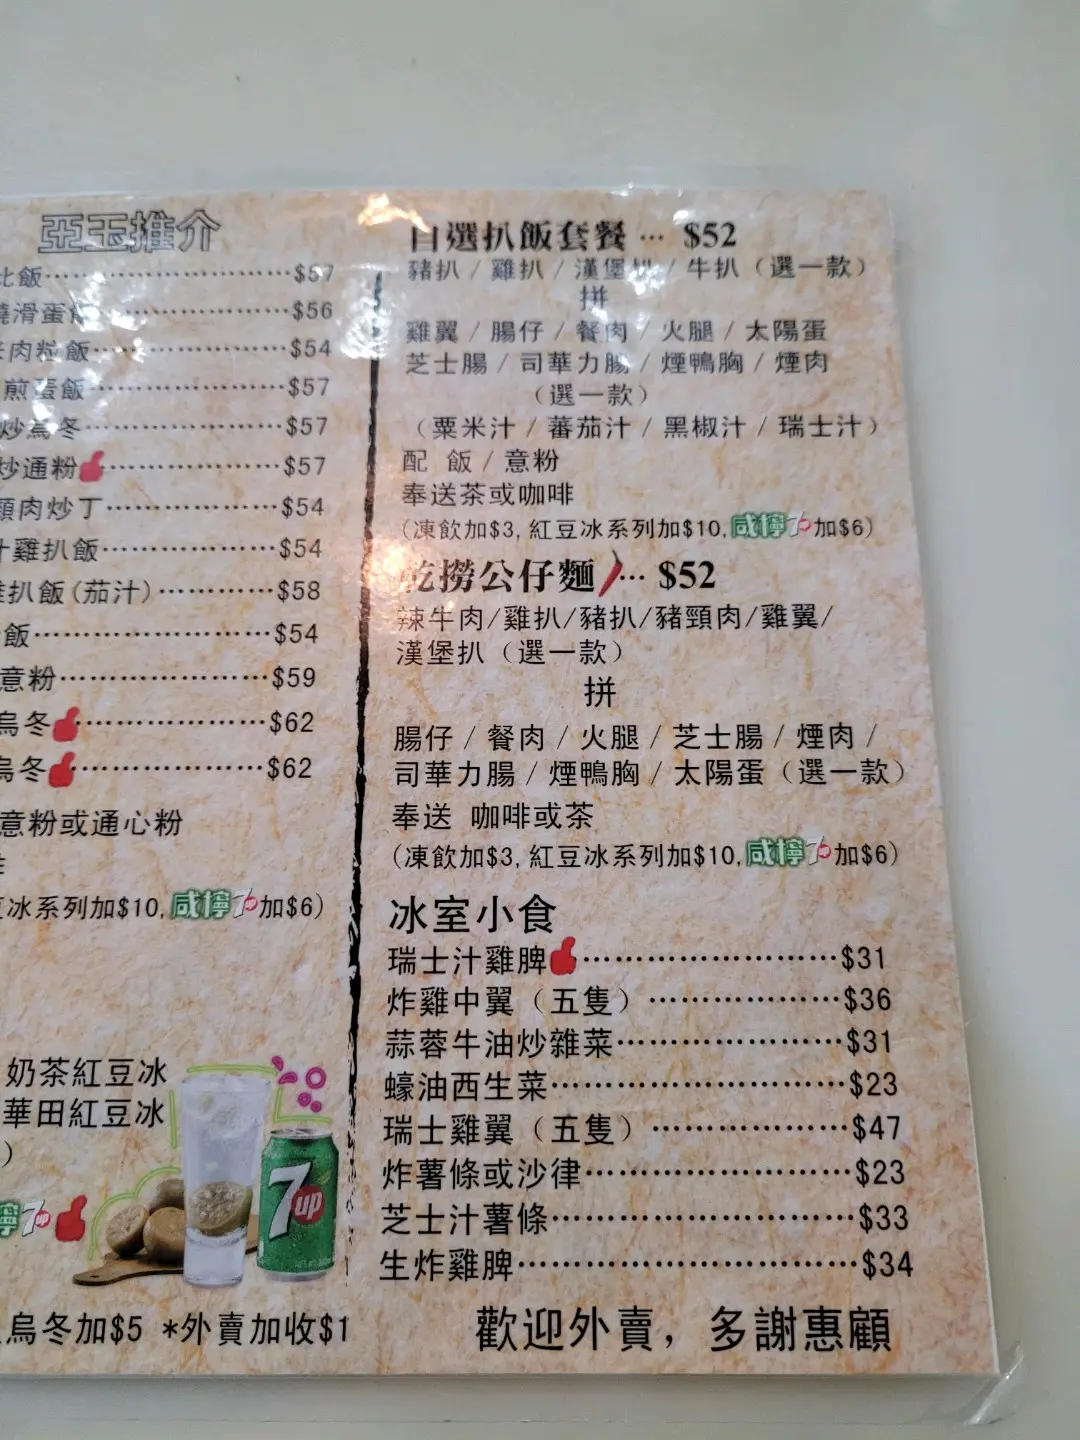 亞玉推介
飯……………………$57
滑蛋……………………$56
肉粒飯…………………$54
煎蛋飯…………………$57
炒烏冬…………………$57
炒通粉…………………$57
頸肉炒丁………………$54
雞扒飯…………………$54
扒飯(茄汁)……………$58
飯………………………$54
意粉……………………$59
烏冬……………………$62
烏冬……………………$62
意粉或通心粉
冰系列加$10,咸檸7加$6)
奶茶紅豆冰
華田紅豆冰
)
檸7
7up
烏冬加$5 *外賣加收$1
自選扒飯套餐 … $52
豬扒 / 雞扒 / 漢堡扒 / 牛扒（選一款）
拼
雞翼 / 腸仔 / 餐肉 / 火腿 / 太陽蛋
芝士腸 / 司華力腸 / 煙鴨胸 / 煙肉
（選一款）
（粟米汁 / 蕃茄汁 / 黑椒汁 / 瑞士汁）
配 飯 / 意粉
奉送茶或咖啡
(凍飲加$3, 紅豆冰系列加$10,咸檸7加$6)
乾撈公仔麵… $52
辣牛肉/雞扒/豬扒/豬頸肉/雞翼/
漢堡扒（選一款）
拼
腸仔 / 餐肉 / 火腿 / 芝士腸 / 煙肉 /
司華力腸 / 煙鴨胸 / 太陽蛋（選一款）
奉送 咖啡或茶
(凍飲加$3, 紅豆冰系列加$10,咸檸7加$6)
冰室小食
瑞士汁雞脾……………………$31
炸雞中翼（五隻）………………$36
蒜蓉牛油炒雜菜…………………$31
蠔油西生菜………………………$23
瑞士雞翼（五隻）………………$47
炸薯條或沙律……………………$23
芝士汁薯條………………………$33
生炸雞脾…………………………$34
歡迎外賣，多謝惠顧